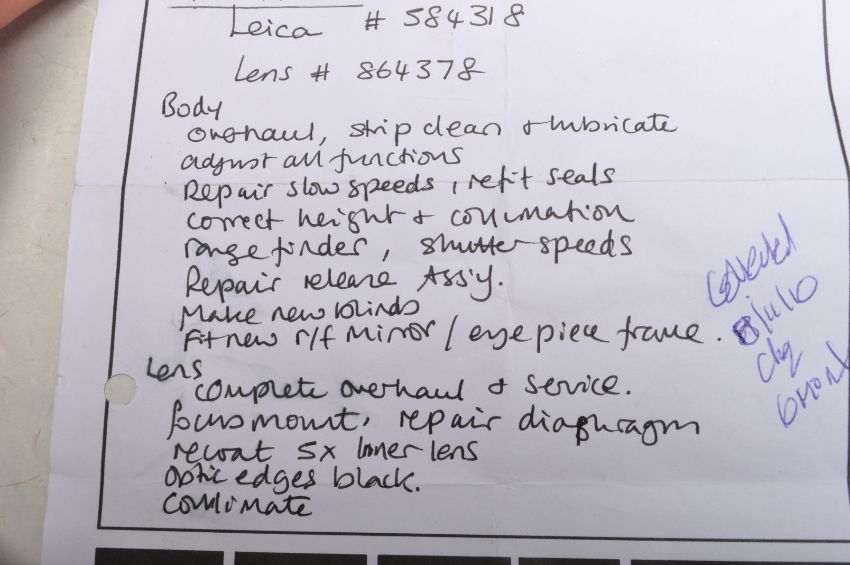 Leica # 584318
Lens # 864378
Body
overhaul, strip clean + lubricate
adjust all functions
Repair slow speeds, refit seals
correct height + collimation
rangefinder, shutter speeds
Repair release Ass'y.
Make new blinds
Fit new r/f mirror / eye piece frame.
Lens
complete overhaul & service.
focus mount, repair diaphragm
recoat 5x Inner lens
optic edges black.
Collimate
Collected
chq